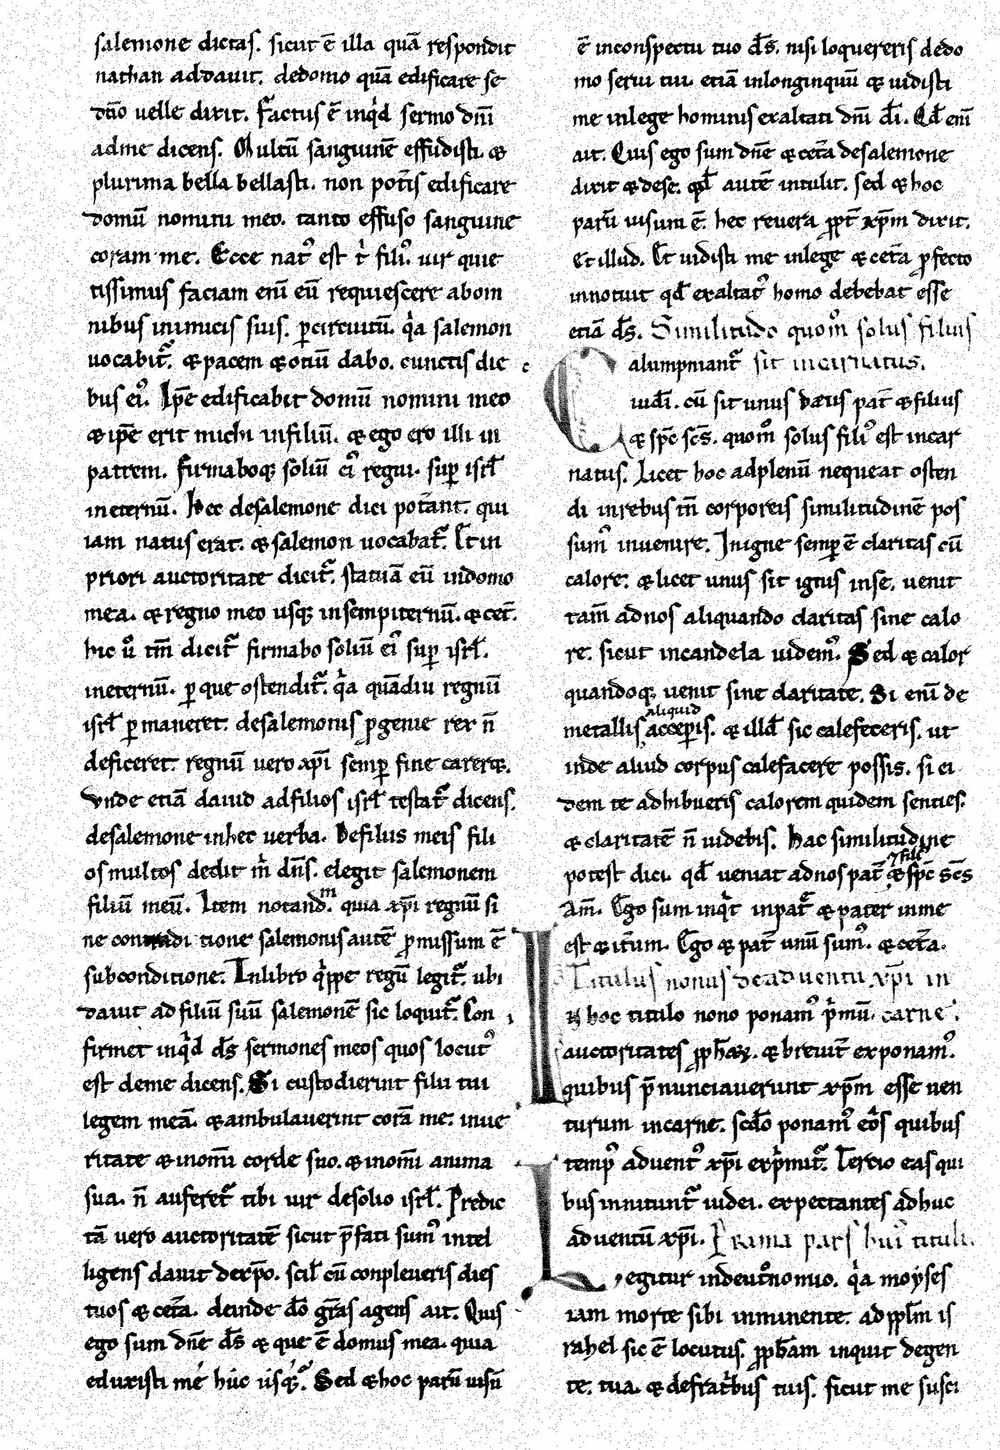 salemone dictas. sicut ē illa quā respondit
nathan ad dauit. de domo quā edificare se
d̄no uelle dixit. Factus ē inqͥd sermo dn̄i
ad me dicens. Multū sanguinē effudisti. &
plurima bella bellasti. non pot̄is edificare
domū nomini meo. tanto effuso sanguine
coram me. Ecce nat᾽ est t̓ fili᾽. uir quie
tissimus faciam enī eū requiescere ab om
nibus inimicis suis. ꝑ circuitū. qͥa salemon
uocabit᷑. & pacem & otiū dabo. cunctis die
bus ei᾽. Ip̄e edificabit domū nomini meo
& ip̄e erit michi in filiū. & ego ero illi in
patrem. firmaboqꝫ soliū ei᾽ regni. suꝑ isrl̄
in eternū. Hec de salemone dici poterant. qui
iam natus erat. & salemon uocabat᷑. Et in
priori auctoritate dicit᷑. statuā eū in domo
mea. & regno meo usqꝫ in sempiternū. & cet̄.
hic u᷑ tm̄ dicit᷑ firmabo soliū ei᾽ suꝑ isrl̄.
in eternū. ꝑ que ostendit᷑. qͥa quādiu regnū
isrl̄ ꝑmaneret. de salemonis ꝓgenie rex n̄
deficeret. regnū uero xp̄i semꝑ fine careret.
Vnde etiā dauid ad filios isrl̄ testat᷑ dicens.
de salemone in hec uerba. De filiis meis fili
os multos dedit m̓ dn̄s. elegit salemonem
filiū meū. Item notand᾽.m quia xp̄i regnū si
ne contradi tione salemonis autē ꝓmissum ē
sub conditione. In libro qͥppe regū legit᷑. ubi
dauit ad filiū suū salemonē sic loquit᷑. Con
firmet inqͥd d̄s sermones meos quos locut᾽
est de me dicens. Si custodierint filii tui
legem meā. & ambulauerint corā me. in ue
ritate & in om̄i corde suo. & in om̄i anima
sua. n̄ auferet᷑ tibi uir de solio isrl̄. Predic
tā uero auctoritatē sicut p̄fati sum᾽ intel
ligens dauit de xp̄o. scil̄ cū conpleueris dies
tuos & cet̄a. deinde d̄o gr̄as agens ait. Quis
ego sum dn̄e d̄s & que ē domus mea. quia
eduxisti me hūc usqꝫ. Sed & hoc parū uisū
ē in conspectu tuo d̄s. nisi loquereris de do
mo serui tui. etiā in longinquū & uidisti
me in lege hominis exaltati dn̄i d̄i. Qd̄ enī
ait. Quis ego sum dn̄e & cet̄a de salemone
dixit & de se. qd̄ autē intulit. sed & hoc
parū uisum ē. hec reuera ꝓpt̄ xp̄m dixit.
Et illud. Et uidisti me in lege & cet̄a ꝓfecto
innotuit qd̄ exaltat᾽ homo debebat esse
etiā d̄s. Similitudo quom̄ solus filius
Calumpniant᷑ sit incarnatus.
iudi. cū sit unus deus pat̄ & filius
& sp̄c sc̄s. quom̄ solus fili᾽ est incar
natus. Licet hoc ad plenū nequeat osten
di in rebus tn̄ corporeis similitudinē pos
sum᾽ inuenire. In igne semꝑ ē claritas cū
calore. & licet unus sit ignis in se. uenit
tam̄ ad nos aliquando claritas sine calo
re. sicut in candela uidem᾽. Sed & calor
quandoqꝫ uenit sine claritate. Si enī de
aliquid
metallis acceꝑis. & illd̄ sic calefeceris. ut
inde aliud corpus calefacere possis. si ei
dem te adhibueris calorem quidem senties.
& claritatē n̄ uidebis. Hac similitudine
potest dici. qd̄ ueniat ad nos pat̄ & sp̄c sc̄s
Ego sum inqͥt in pat᷑ & pater in me
est & itūm. Ego & pat̄ unū sum᾽. & cet̄a.
Titulus nonus de aduentu xp̄i in
In hoc titulo nono ponam᾽ pͥmū. carne.
auctoritates ꝓph̄aꝝ. & breuit̄ exponam᾽.
quibus p̄nunciauerunt xp̄m esse uen
turum in carne. scd̄o ponam᾽ eos quibus
temp᾽ aduent᾽ xp̄i expͥmit᷑. Tercio eas qui
bus innitunt᷑ iudei. expectantes adhuc
aduentū xp̄i. Prima pars hui᾽ tituli.
Legitur in deut̓onomio. qͥa moyses
iam morte sibi imminente. ad ppl̄m is
rahel sic ē locutus. ꝓph̄am inquit de gen
te. tua. & de fratribus tuis. sicut me susci